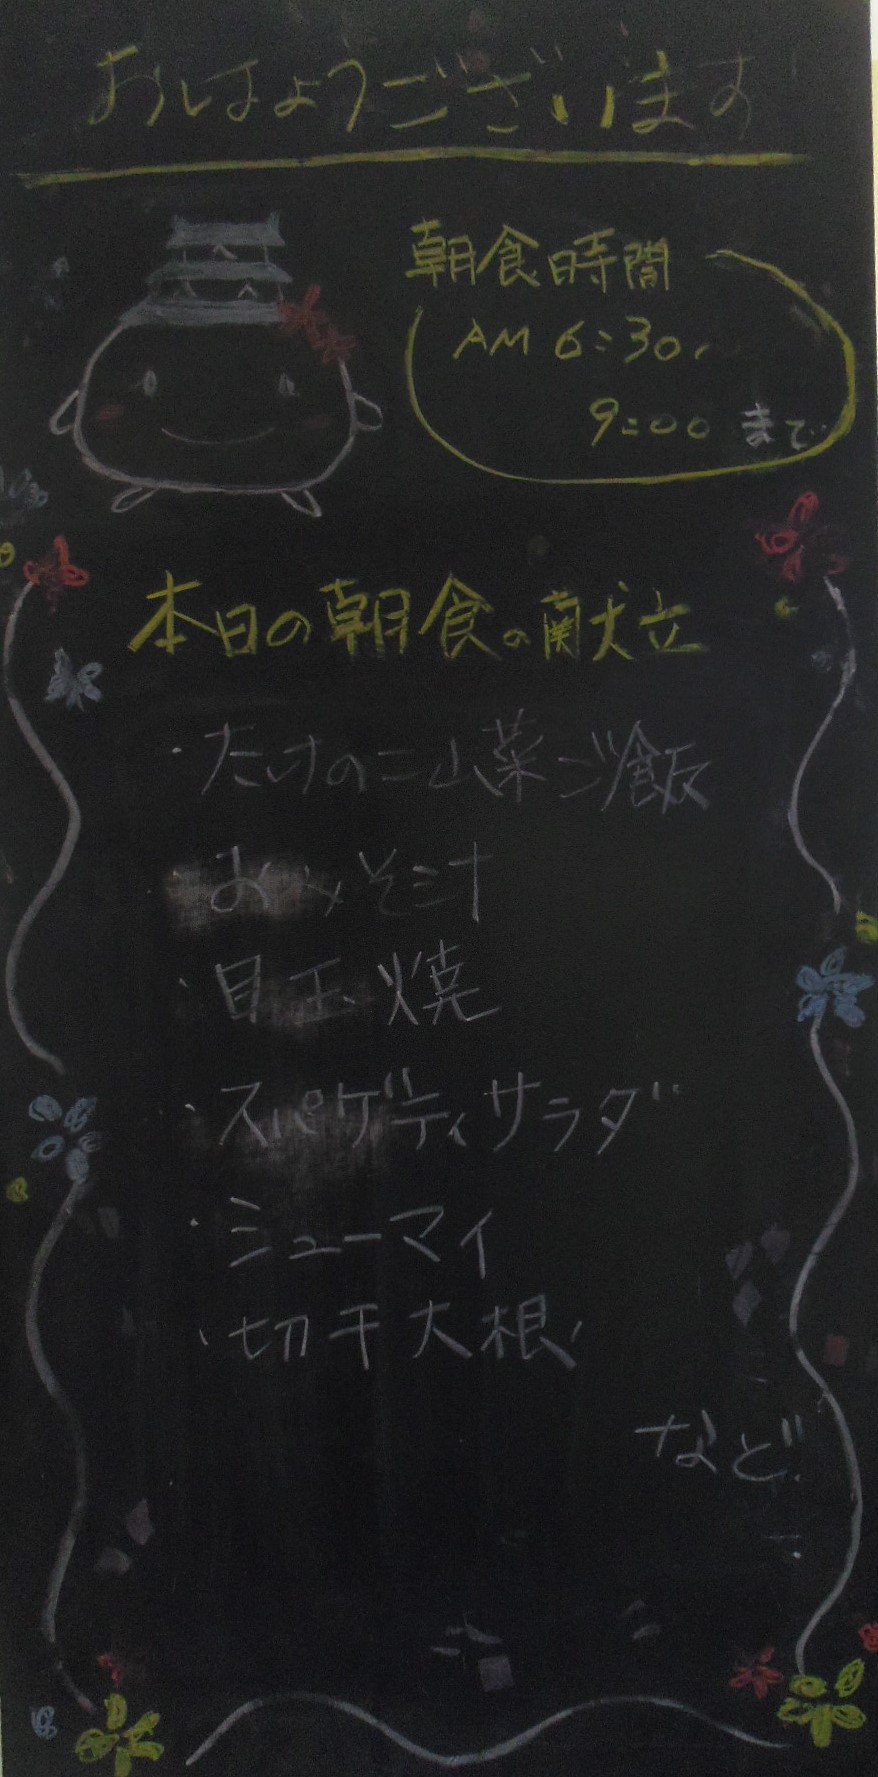 おはようございます
朝食時間
AM 6:30〜
9:00 まで
本日の朝食の献立
・たけのこ山菜ご飯
・おみそ汁
・目玉焼
・スパゲティサラダ
・シューマイ
・切干大根
など